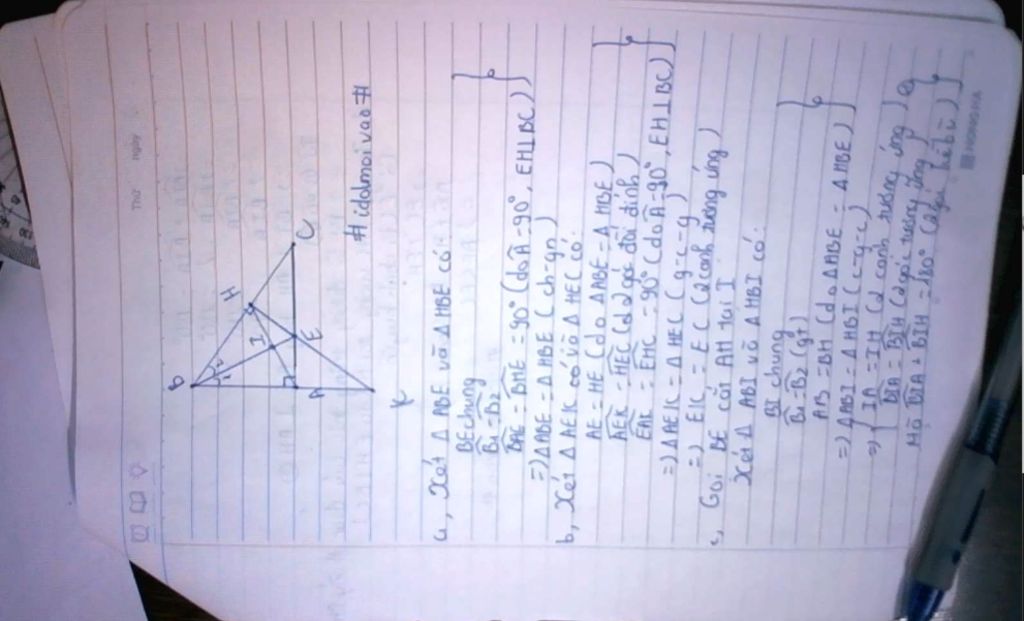 Thứ
Ngày
B
H
1 2
I
A
E
C
K
#idolmoivao#
a, Xét Δ ABE và Δ HBE có
BE chung
B̂₁ = B̂₂
BAE = BHE = 90° (do Â = 90°, EH⊥BC)
=) Δ ABE = Δ HBE (ch-gn)
b, Xét Δ AEK có và Δ HEC có:
AE = HE (do ΔABE = Δ HBE)
AEK = HEC (2 góc đối đỉnh)
EAK = EHC = 90° (do Â = 90°, EH⊥BC)
=) Δ AEK = Δ HEC (g-c-g)
=) EK = EC (2 cạnh tương ứng)
c, Gọi BE cắt AH tại I
Xét Δ ABI và Δ HBI có:
BI chung
B̂₁ = B̂₂ (gt)
AB = BH (do Δ ABE = Δ HBE)
=) Δ ABI = Δ HBI (c-g-c)
=) IA = IH (2 cạnh tương ứng)
BIA = BIH (2 góc tương ứng)
Mà BIA + BIH = 180° (2 góc kề bù)
HONG HA